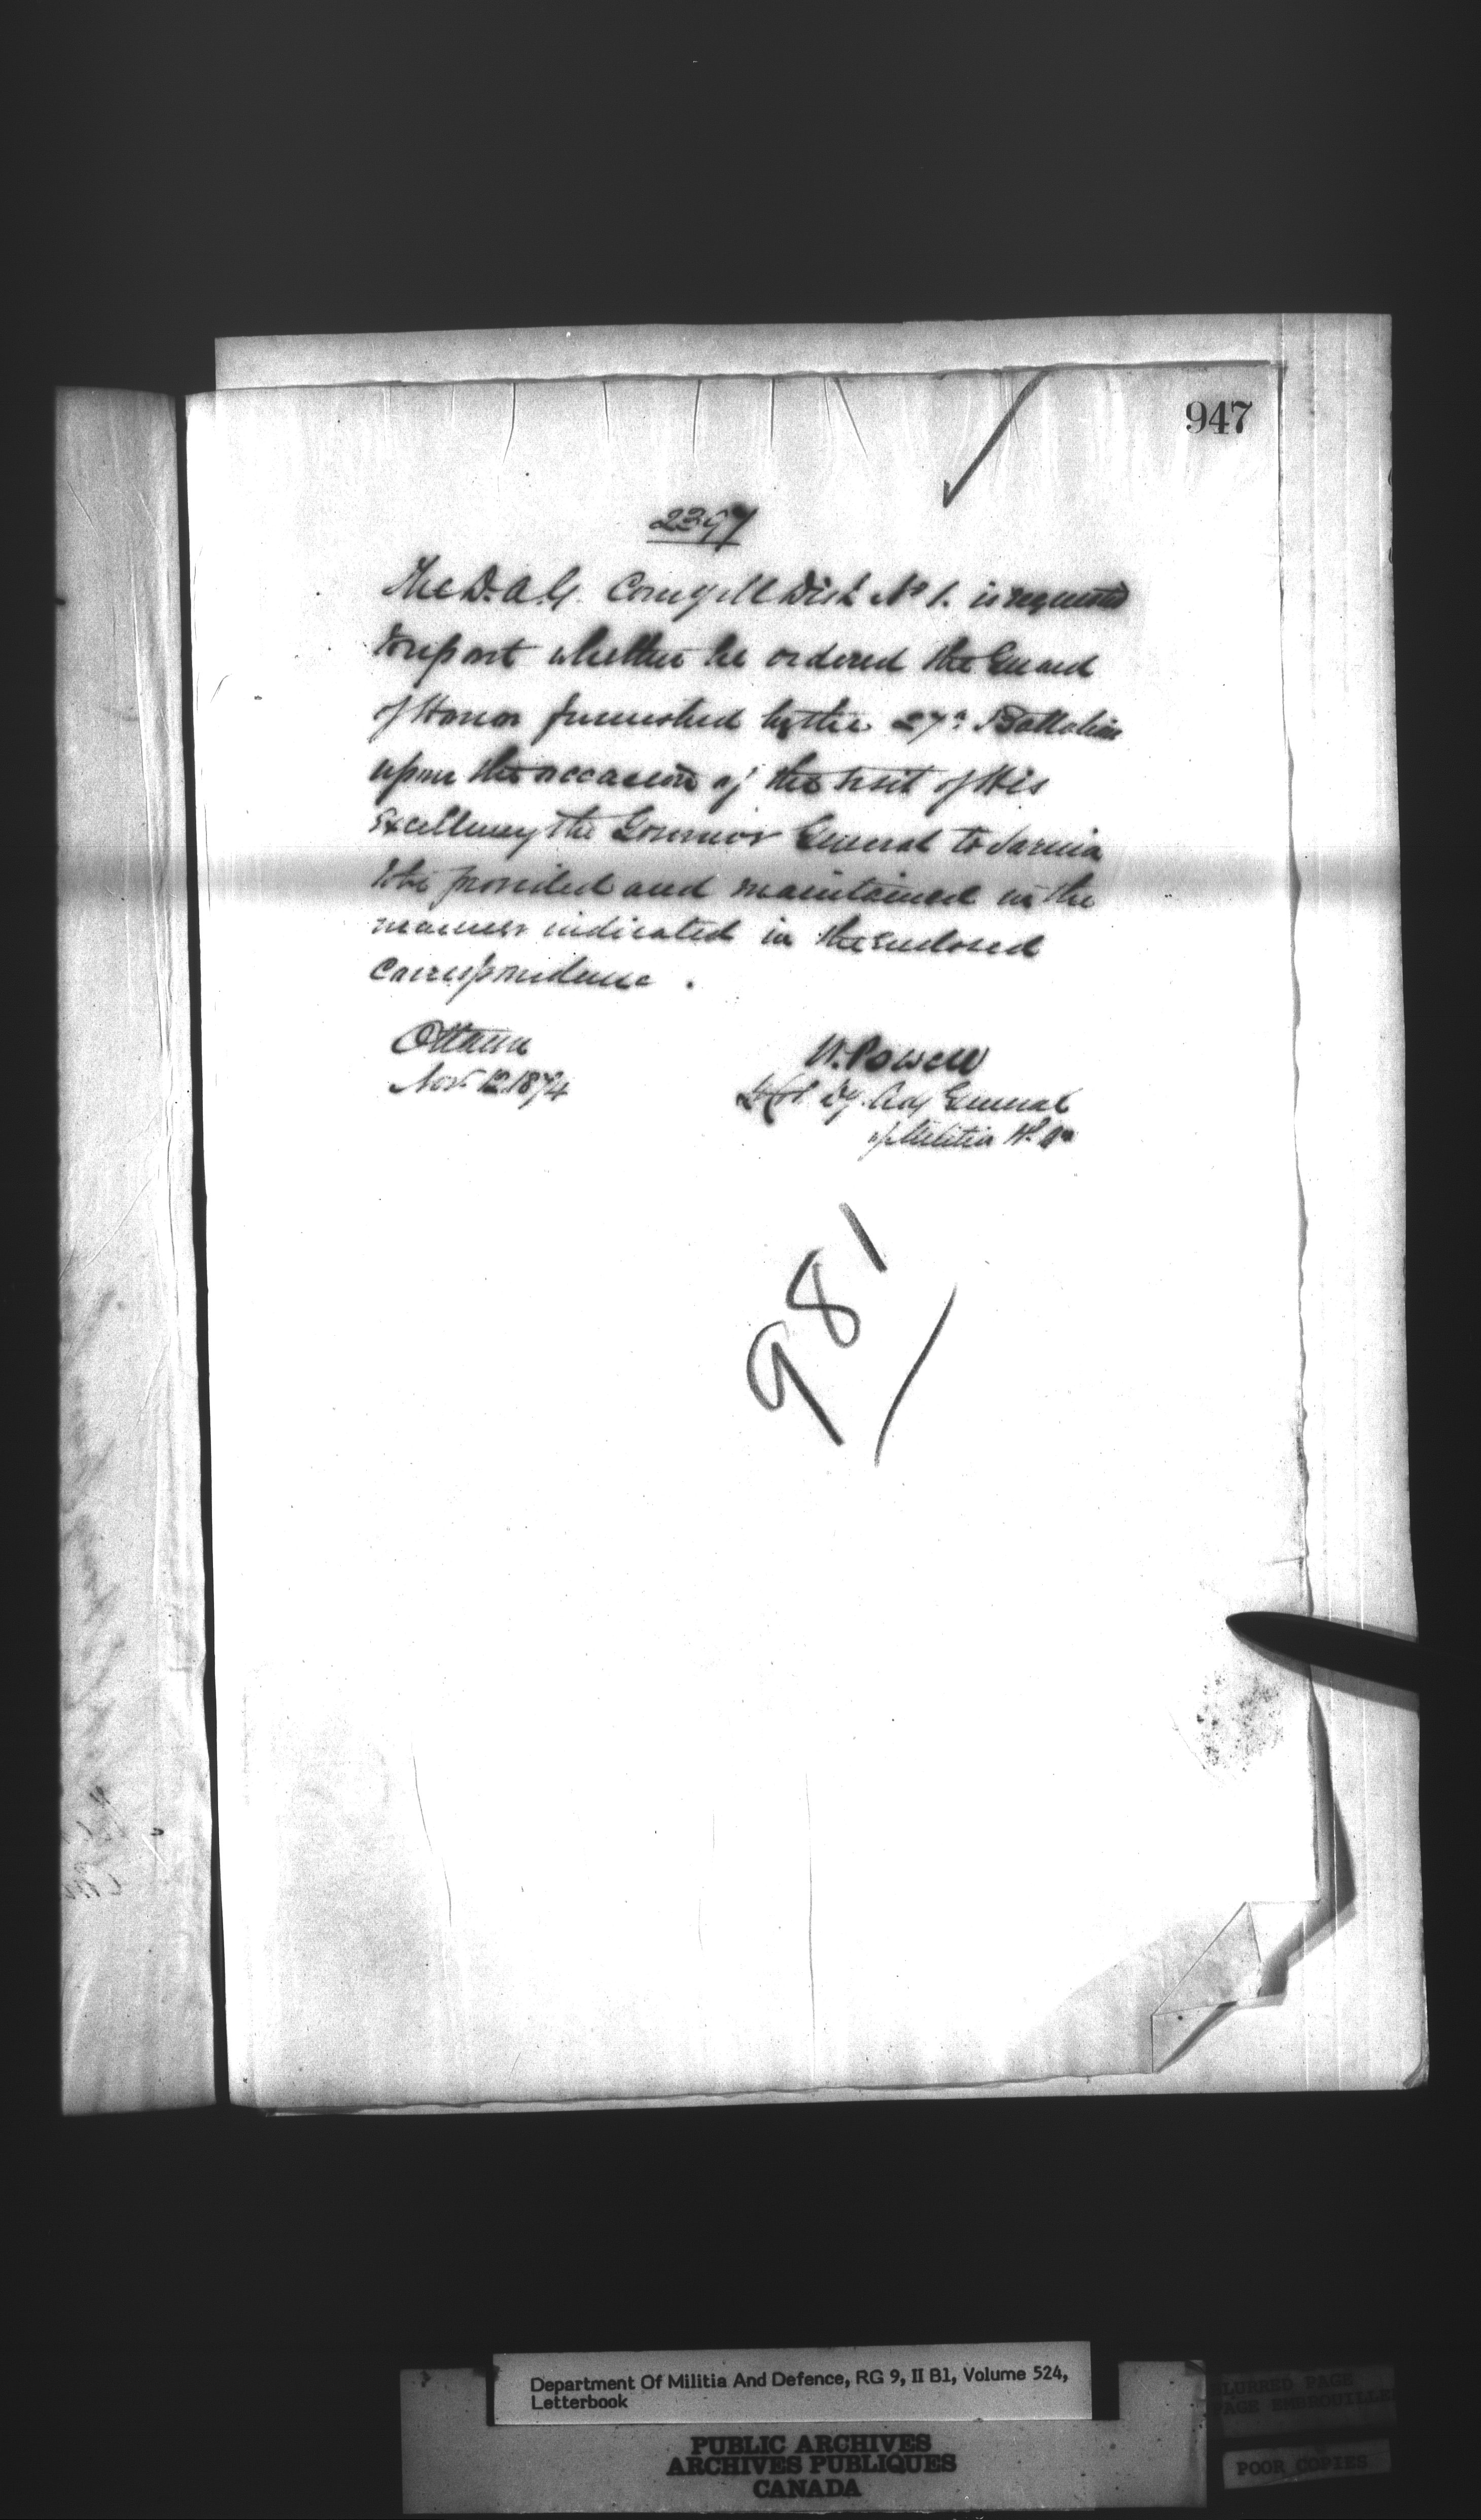 947
2397
The D.A.G. Comg Mil Dist No 1. is requested
to report whether he ordered the Guard
of Honor furnished by the 27th Battalion
upon the occasion of the visit of His
Excellency the Governor General to Sarnia
to be provided and maintained in the
manner indicated in the enclosed
Correspondence.
Ottawa
Nov 12 1874
W. Powell
Lt Col Dy. Adj General
of Militia H.Q.
981
Department Of Militia And Defence, RG 9, II B1, Volume 524,
Letterbook
PUBLIC ARCHIVES
ARCHIVES PUBLIQUES
CANADA
BLURRED PAGE
PAGE EMBROUILLE
POOR COPIES